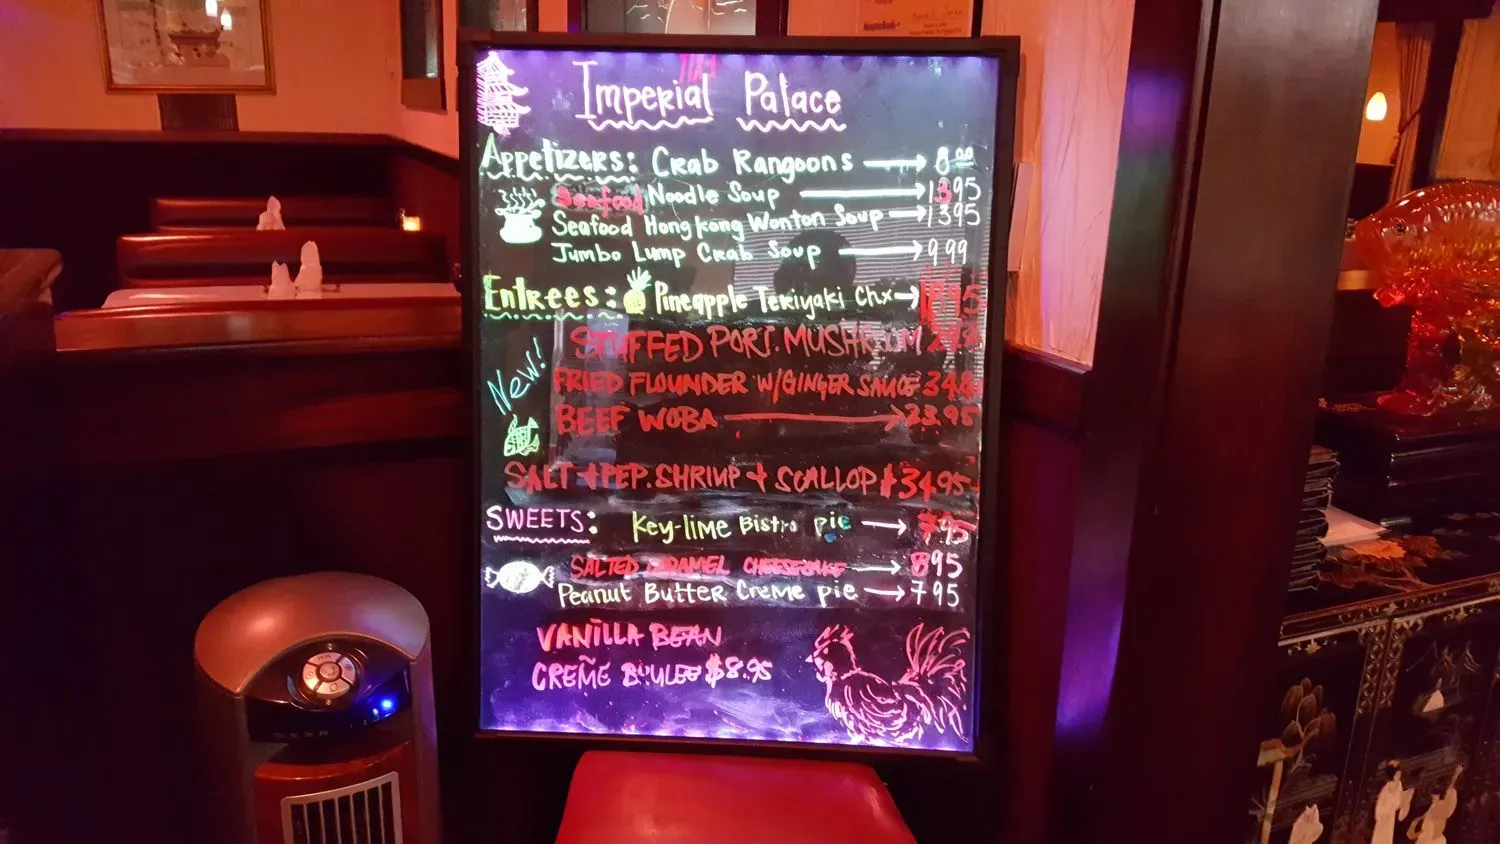 Imperial Palace
Appetizers: Crab Rangoons → 8.00
Seafood Noodle Soup → 13.95
Seafood Hong kong Wonton Soup → 13.95
Jumbo Lump Crab Soup → 9.99
Entrees: Pineapple Teriyaki Chx →
New!
STUFFED PORT. MUSHROOM
FRIED FLOUNDER W/GINGER SAUCE
BEEF WOBA → 23.95
SALT + PEP. SHRIMP + SCALLOP $34.95
SWEETS: Key-lime Bistro pie → 7.95
SALTED CARAMEL CHEESECAKE → 8.95
Peanut Butter Creme pie → 7.95
VANILLA BEAN
CREÑE BULEE $8.95